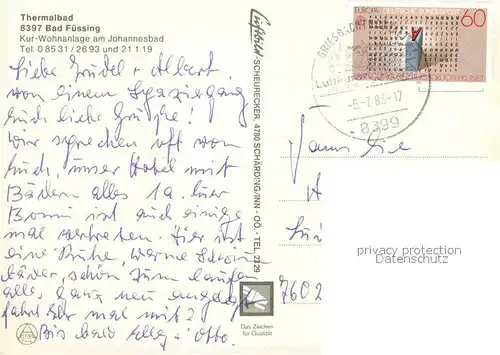 Thermalbad
8397 Bad Füssing
Kur-Wohnanlage am Johannesbad
Tel. 0 85 31 / 26 93 und 2 11 19
Liebe Trudel + Albert,
von einem Spaziergang
Euch liebe Grüße!
Wir sprechen oft von
Euch, unser Hotel mit
Bädern alles 1a.
Bonn ist auch einige
mal vertreten. Hier ist
eine Ruhe, warme
bäder, schön zum laufen
alles, ganz neu angelegt
fahrt Ihr mal mit?
Bis bald Elly + Otto.
Luftbild-SCHEURECKER, 4780 SCHÄRDING/INN - OÖ. - TEL. 2329
Das Zeichen
für Qualität
EUROPA DEUTSCHE BUNDESPOST 60
GRIESBACH
-5.-7.83-17
8399
7602
privacy protection
Datenschutz